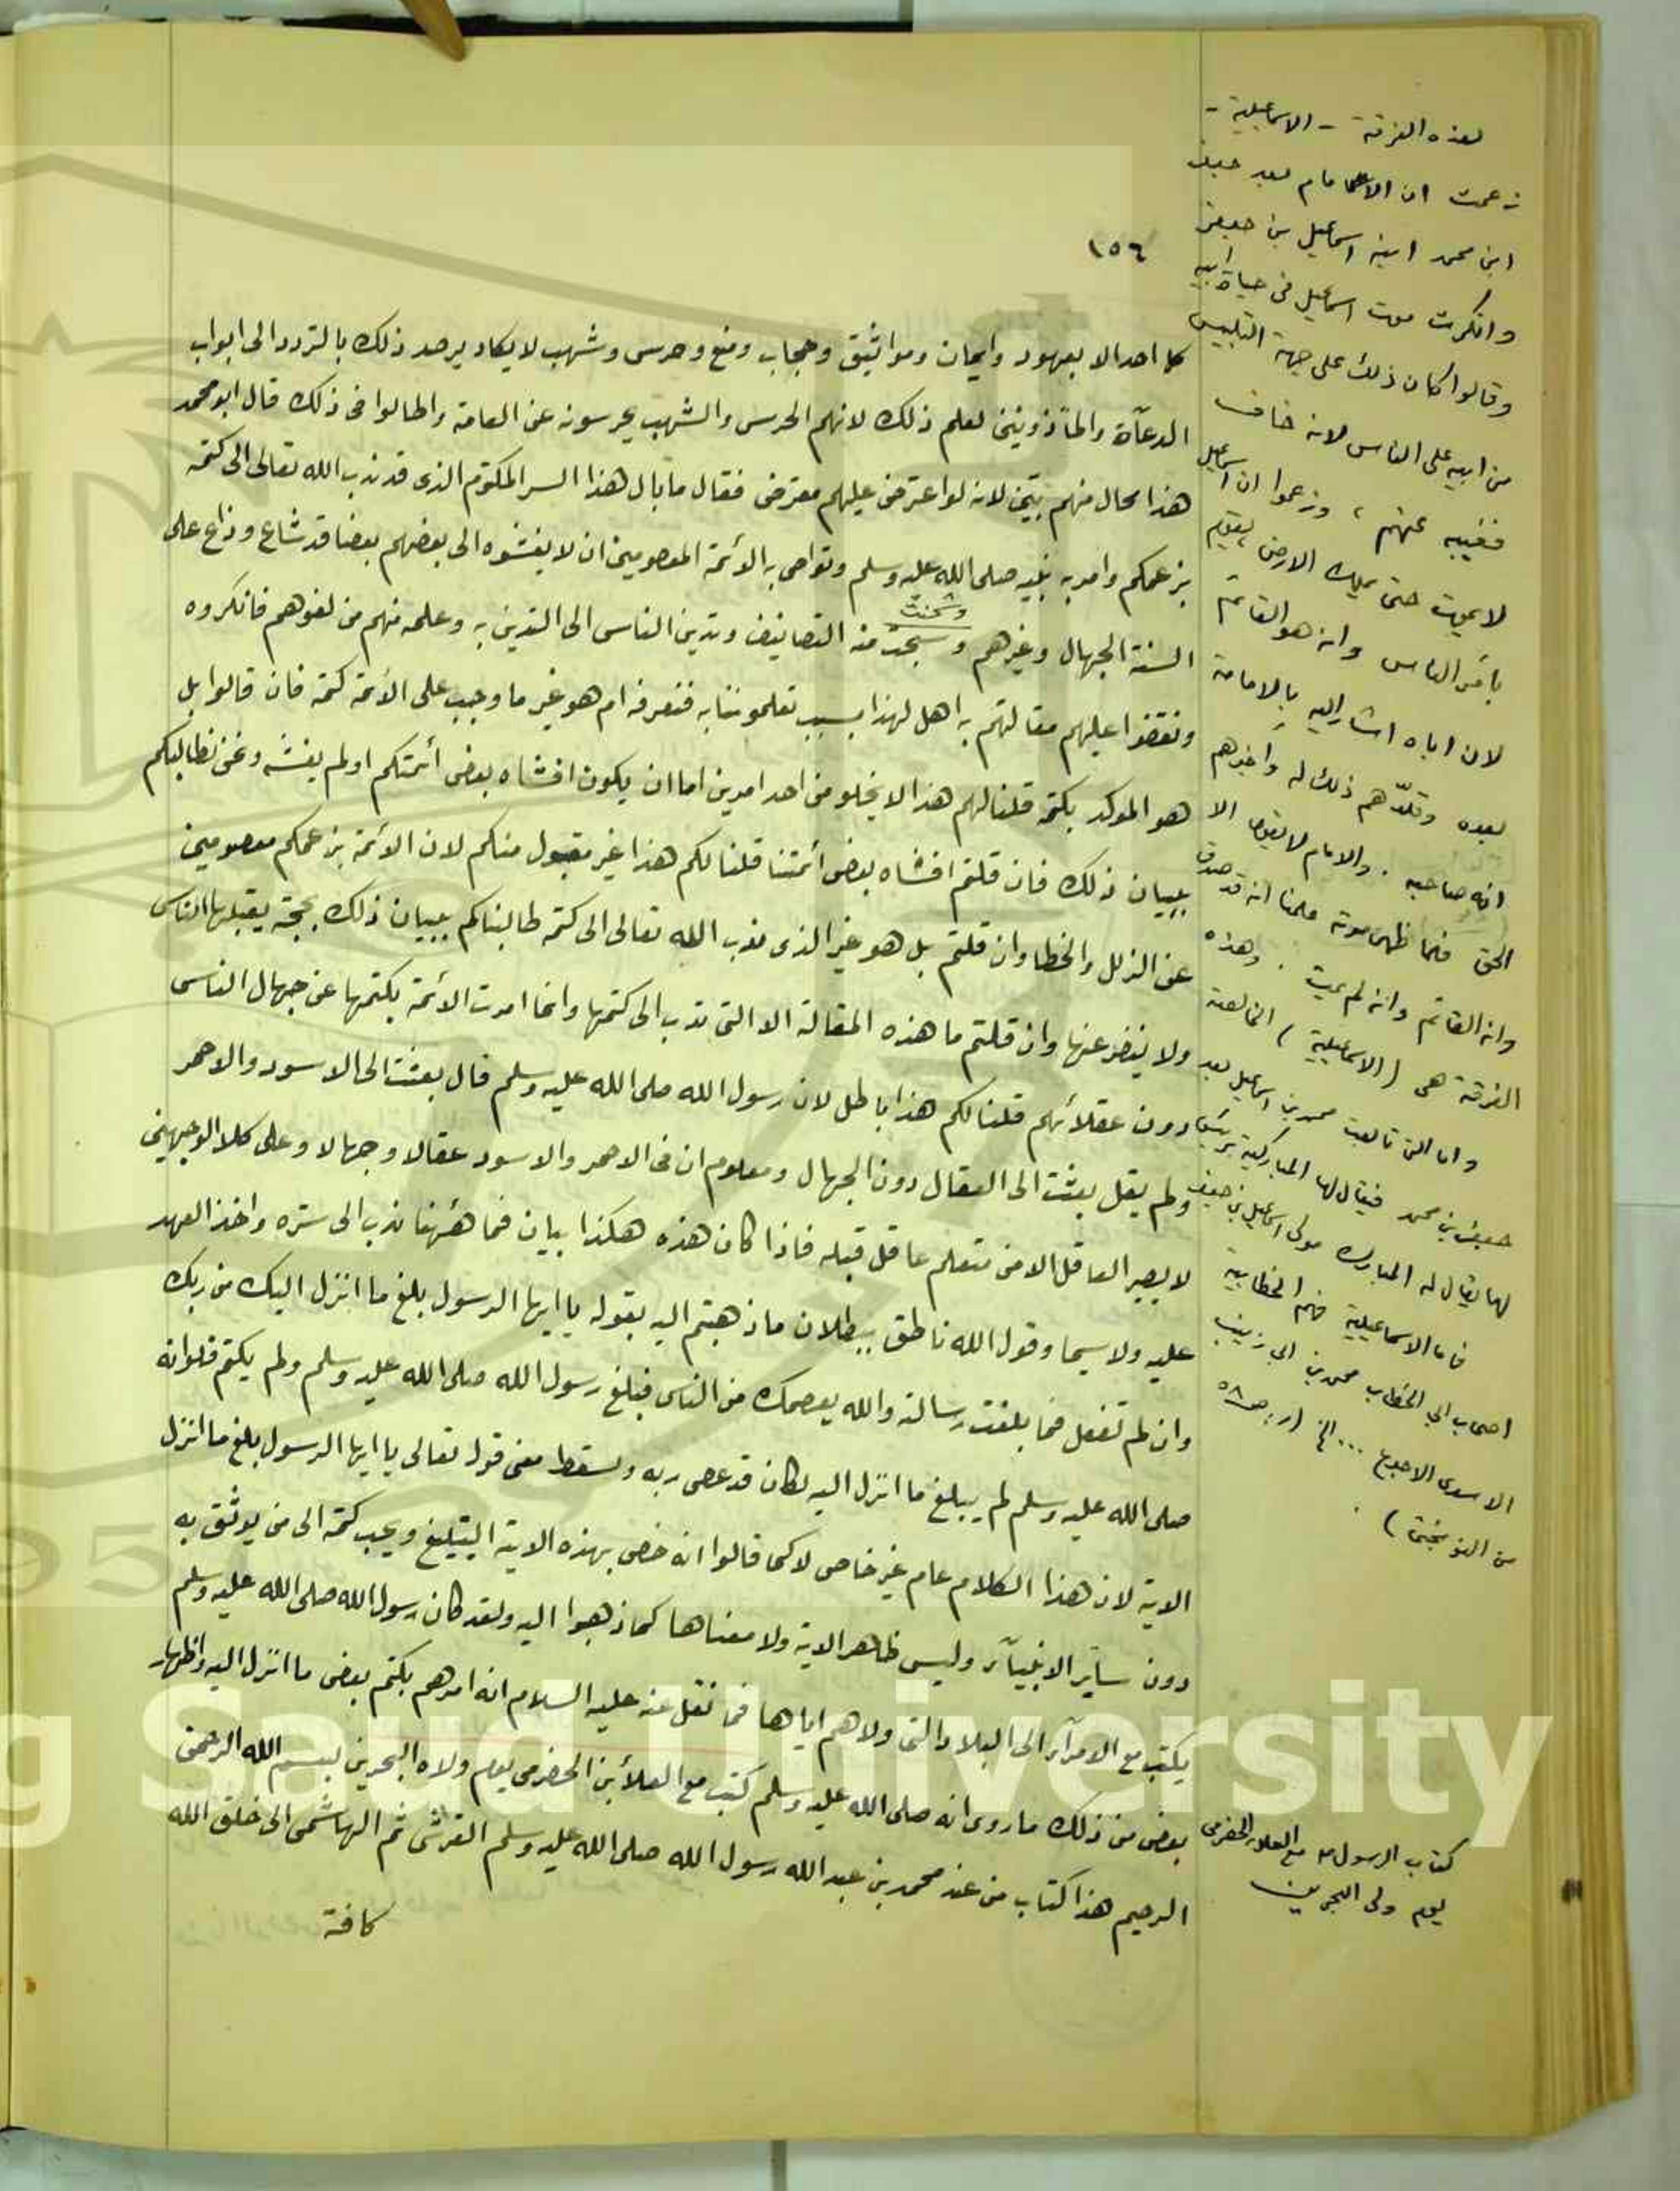 ١٥٦
كل احد الا بعهود وايمان ومواثيق وحجاب ومنع وحرس وشهب لا يكاد يرصد ذلك بالتردد الى ابواب
الدعآة والمأذونين لعلم ذلك لانهم الحرس والشهب يحرسونه عن العامة واطالوا فى ذلك قال ابو محمد
هذا محال منهم بيّن لانه لو اعترض عليهم معترض فقال ما بال هذا السر المكتوم الذى قد ندب الله تعالى الى كتمه
بزعمكم وامر به نبيه صلى الله عليه وسلم وتواصى به الأئمة المعصومين ان لا يفشوه الى بعضهم بعضا قد شاع وذاع على
وشحنت
السنة الجهال وغيرهم وسجت منه التصانيف وتدين الناس الى التدين به وعلمه منهم من لغوهم فانكروه
ونقضوا عليهم مقالتهم به اهل لهذا بسبب تعلموننا به فنعرفه ام هو غير ما وجب على الأئمة كتمه فان قالوا بل
هو الموكد بكتمه قلنا لهم هذا لا يخلو من احد امرين اما ان يكون افشاه بعض أئمتكم او لم يفشه وعن نطالبكم
ببيان ذلك فان قلتم افشاه بعض أئمتنا قلنا لكم هذا غير مقبول منكم لان الأئمة بزعمكم معصومين
عن الزلل والخطا وان قلتم بل هو غير الذى ندب الله تعالى الى كتمه طالبناكم ببيان ذلك بحجة يقبلها الناس
ولا ينفر عنها وان قلتم ما هذه المقالة الا التى ندب الى كتمها وانما امرت الأئمة بكتمها عن جهال الناس
دون عقلائهم قلنا لكم هذا باطل لان رسول الله صلى الله عليه وسلم قال بعثت الى الاسود والاحمر
ولم يقل بعثت الى العقال دون الجهال ومعلوم ان فى الاحمر والاسود عقالا وجهالا وعلى كلا الوجهين
لا يصير العاقل الا من متعلم عاقل قبله فاذا كان هذه هكذا بيان فما هٔهنا ندب الى ستره واخذ العهد
عليه ولا سيما وقول الله ناطق ببطلان ما ذهبتم اليه بقوله يا ايها الرسول بلغ ما انزل اليك من ربك
وان لم تفعل فما بلغت رسالته والله يعصمك من الناس فبلغ رسول الله صلى الله عليه وسلم ولم يكتم فلوانه
صلى الله عليه وسلم لم يبلغ ما انزل اليه لكان قد عصى ربه ولسقط معنى قول تعالى يا ايها الرسول بلغ ما انزل
الاية لان هذا الكلام عام غير خاص لا كما قالوا انه خص بهذه الاية التبليغ ويجب كتمه الى من يوثق به
دون سآير الانبيآء وليس ظاهر الاية ولا معناها كما ذهبوا اليه ولقد كان رسول الله صلى الله عليه وسلم
يكتب مع الامرآء الى البلاد التى ولاهم اياها فما نقل عنه عليه السلام انه امرهم بكتم بعض ما انزل اليه واظهار
بعض من ذلك ما روى انه صلى الله عليه وسلم كتب مع العلاء بن الحضرمى يوم ولاه البحرين بسم الله الرحمن
الرحيم هذا كتاب من عند محمد بن عبد الله رسول الله صلى الله عليه وسلم القرشى ثم الهاشمى الى خلق الله
كافة
لهذه الفرقة - الاسماعيلية -
زعمت ان الامام بعد جعفر
ابن محمد ابنه اسماعيل بن جعفر
وانكرت موت اسماعيل فى حياة ابيه
وقالوا كان ذلك على جهة التلبيس
من ابيه على الناس لانه خاف
فغيبه عنهم ، وزعموا ان اسماعيل
لا يموت حتى يملك الارض ، يقوم
بأمر الناس وانه هو القائم
لان اباه اشار اليه بالامامة
بعده وقلّدهم ذلك له واخبرهم
انه صاحبه . والامام لا يقول الا
الحق فلما ظهر موته علمنا انه قد صدق
وانه القائم وانه لم يمت . وهذه
الفرقة هى (الاسماعيلية) الخالصة
واما التى قالت محمد بن اسماعيل بعد
جعفر بن محمد فيقال لها المباركية برئيس
لها يقال له المبارك مولى اسماعيل بن جعفر
فاما الاسماعيلية فهم الخطابية
اصحاب ابي الخطاب محمد بن ابي زينب
الاسدى الاجدع ... الخ (ر: ص ٥٨
من النوبختى) .
كتاب الرسول مع العلاء الحضرمى
يوم ولى البحرين
King Saud University